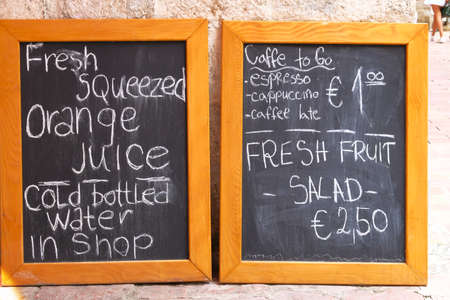 Fresh
SQUEEZED
Orange
JUICE
Cold bottled
water
in Shop
Caffe to Go
- espresso
- cappuccino
- caffee late
€ 1.00
FRESH FRUIT
- SALAD -
€ 2,50